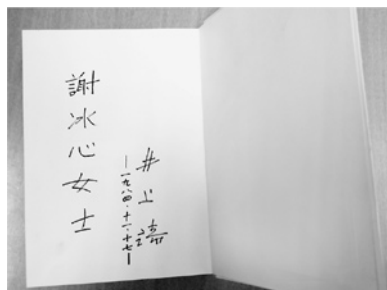 謝冰心女士
井上靖
一九八四·十一·十七